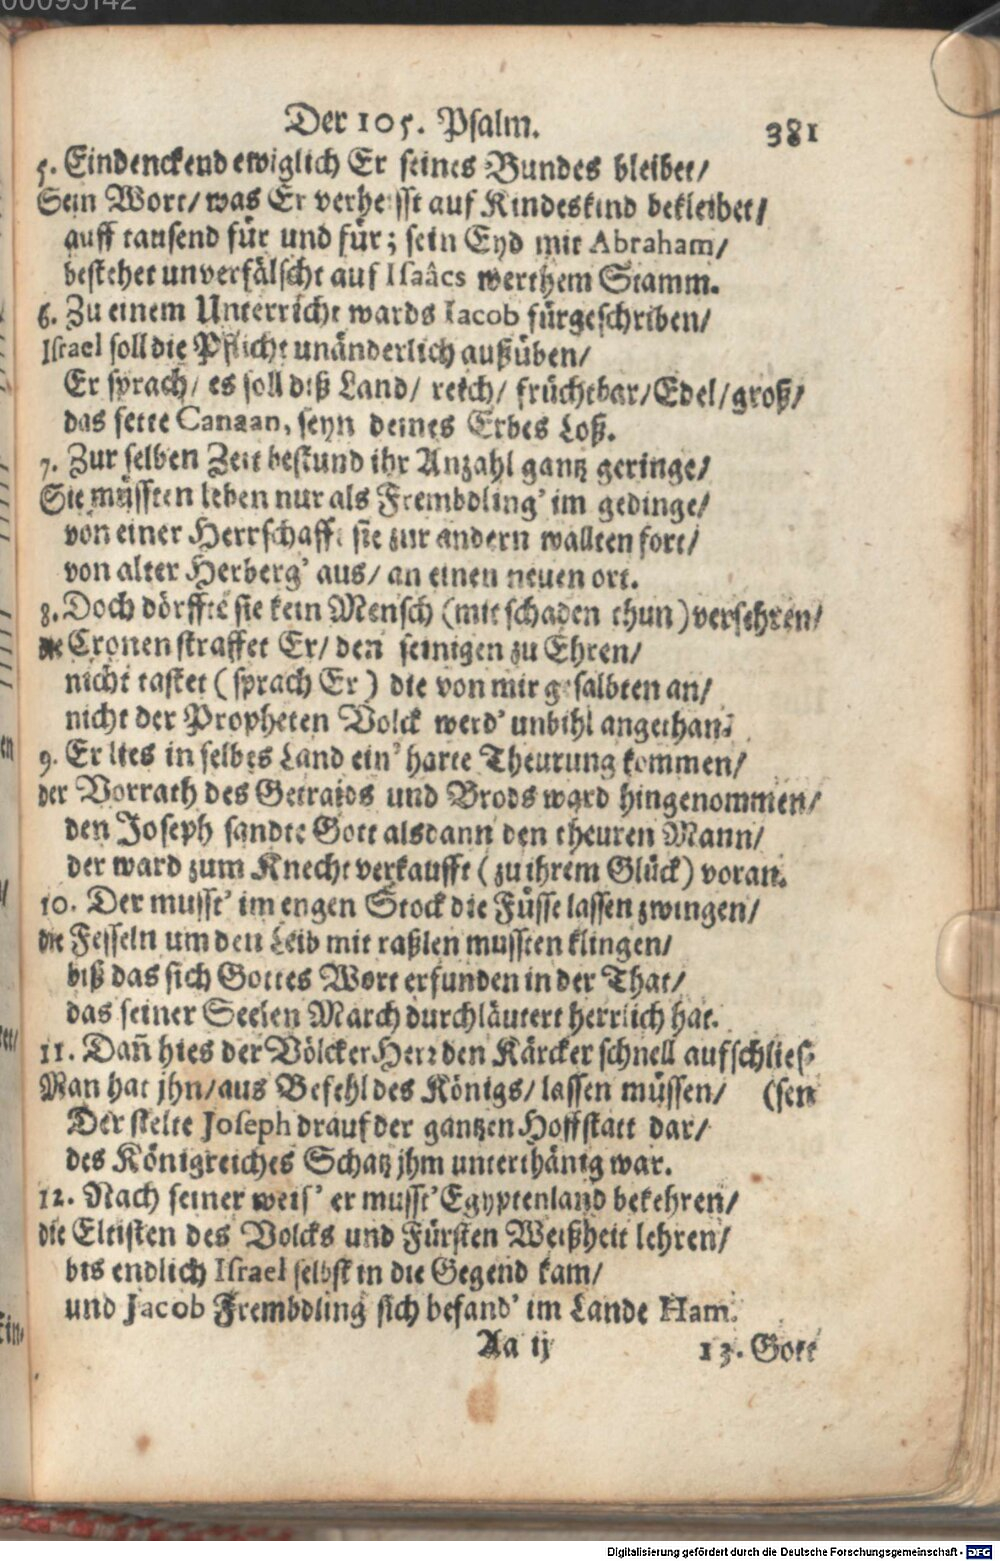 00095142
Der 105. Psalm. 381
5. Eindenckend ewiglich Er seines Bundes bleibet/
Sein Wort/ was Er verheisst auf Kindeskind bekleibet/
auff tausend für und für; sein Eyd mit Abraham/
bestehet unverfälscht auf Isaâcs werthem Stamm.
6. Zu einem Unterricht wards Iacob fürgeschriben/
Israel soll die Pflicht unänderlich außüben/
Er sprach/ es soll diß Land/ reich/ früchtbar/ Edel/ groß/
das fette Canaan, seyn deines Erbes Loß.
7. Zur selben Zeit bestund ihr Anzahl gantz geringe/
Sie müssten leben nur als Frembdling' im gedinge/
von einer Herrschafft sie zur andern wallten fort/
von alter Herberg' aus/ an einen neuen ort.
8. Doch dörffte sie kein Mensch (mit schaden thun) versehren/
die Cronen straffet Er/ den seinigen zu Ehren/
nicht tastet (sprach Er) die von mir gesalbten an/
nicht der Propheten Volck werd' unbihl angethan.
9. Er lies in selbes Land ein' harte Theurung kommen/
der Vorrath des Getraids und Brods ward hingenommen/
den Joseph sandte Gott alsdann den theuren Mann/
der ward zum Knecht verkaufft (zu ihrem Glück) voran.
10. Der musst' im engen Stock die Füsse lassen zwingen/
die Fesseln um den Leib mit raßlen mussten klingen/
biß das sich Gottes Wort erfunden in der That/
das seiner Seelen March durchläutert herrlich hat.
11. Dañ hies der Völcker Herr den Kärcker schnell aufschlies-
Man hat jhn/ aus Befehl des Königs/ lassen müssen/ (sen
Der stelte Joseph drauf der gantzen Hoffstatt dar/
des Königreiches Schatz jhm unterthänig war.
12. Nach seiner weis' er musst' Egyptenland bekehren/
die Eltisten des Volcks und Fürsten Weißheit lehren/
bis endlich Israel selbst in die Gegend kam/
und Jacob Frembdling sich befand' im Lande Ham.
Aa ij 13. Gott
Digitalisierung gefördert durch die Deutsche Forschungsgemeinschaft - DFG